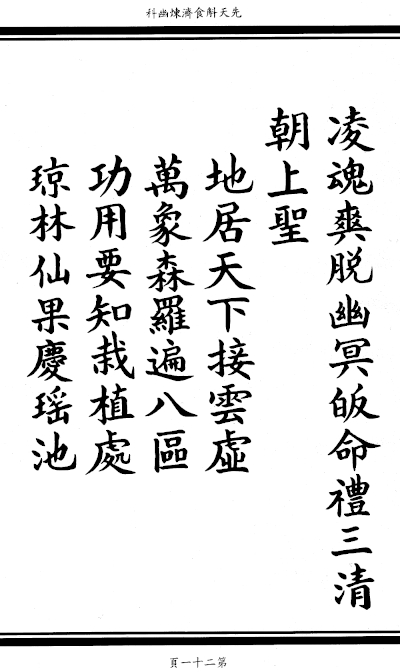 先天斛食濟煉幽科
凌魂爽脱幽冥皈命禮三清
朝上聖
地居天下接雲虛
萬象森羅遍八區
功用要知栽植處
琼林仙果慶瑶池
第二十一頁